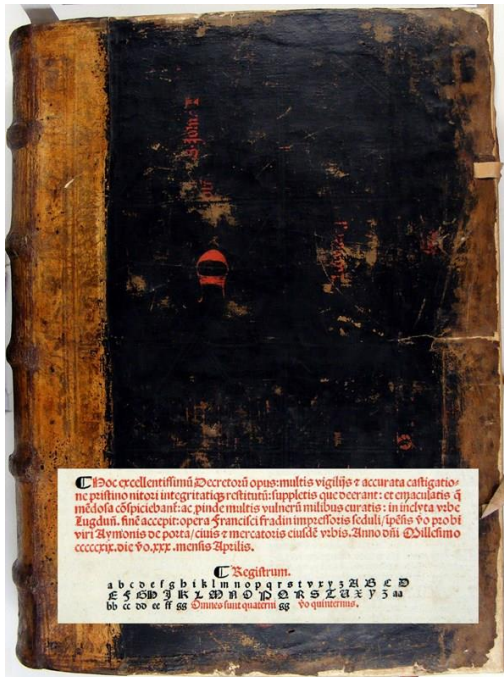 ¶Hoc excellentissimū Decretorū opus: multis vigilijs ⁊ accurata castigatio-
ne pristino nitori integritatiqȝ restitutū: suppletis que deerant: et emaculatis q̄
mēdosa cōspiciebant᷑: ac ꝓinde multis vulnerū milibus curatis: in inclyta vrbe
Lugduñ. finē accepit: opera Francisci fradin impressoris seduli/ ip̄ēsis v̊o probi
viri Aymonis de porta/ ciuis ⁊ mercatoris eiusdē vrbis. Anno dñi Millesimo
cccccxix. die v̊o. xxx. mensis Aprilis.
¶Registrum.
a b c d e f g h i k l m n o p q r s t v x y z A B C D
E F G H I K L M N O P Q R S T U X Y Z aa
bb cc dd ee ff gg Omnes sunt quaterni gg v̊o quinternus.